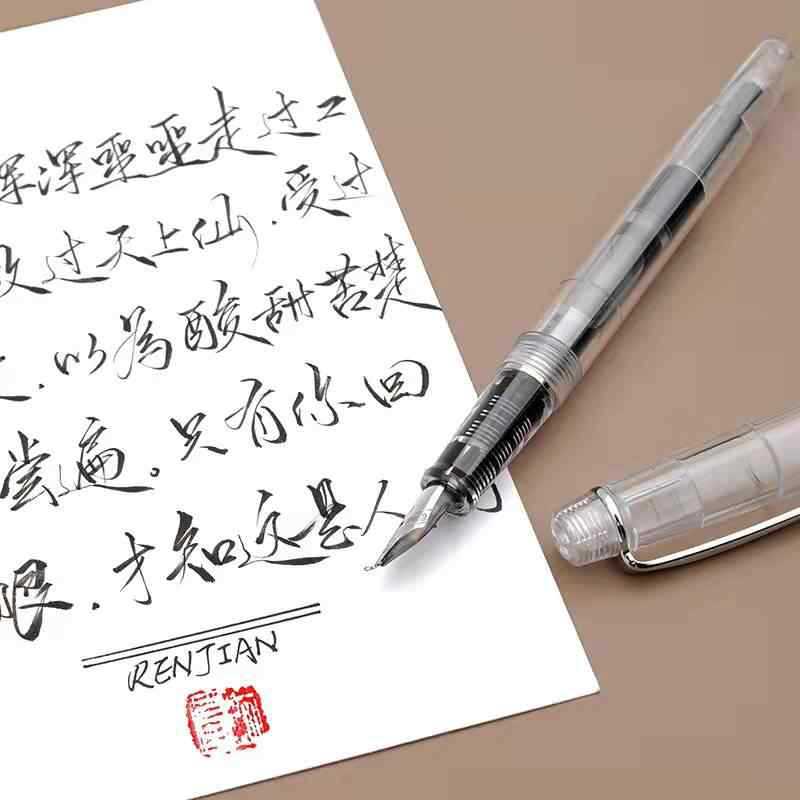 浑浑噩噩走过
过天上仙,受过
,以為酸甜苦楚
尝遍。只有你回
眼,才知这是人
RENJIAN